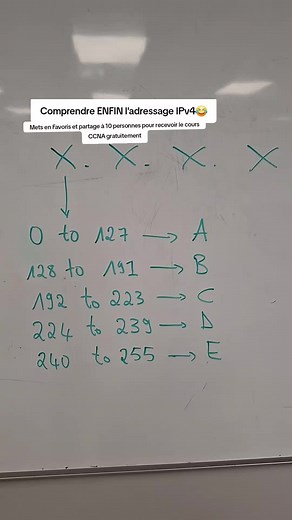 Comprendre ENFIN l'adressage IPv4😂
Mets en Favoris et partage à 10 personnes pour recevoir le cours
CCNA gratuitement
X. X. X. X
0 to 127 → A
128 to 191 → B
192 to 223 → C
224 to 239 → D
240 to 255 → E